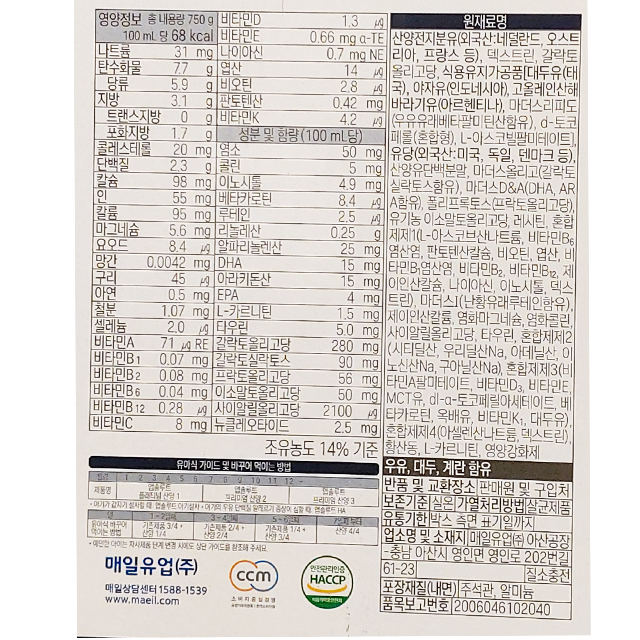 영양정보 총 내용량 750 g
100 mL 당 68 kcal
나트륨 31 mg
탄수화물 7.7 g
당류 5.9 g
지방 3.1 g
트랜스지방 0 g
포화지방 1.7 g
콜레스테롤 20 mg
단백질 2.3 g
칼슘 98 mg
인 55 mg
칼륨 95 mg
마그네슘 5.6 mg
요오드 8.4 ㎍
망간 0.0042 mg
구리 45 ㎍
아연 0.5 mg
철분 1.07 mg
셀레늄 2.0 ㎍
비타민A 71 ㎍ RE
비타민B1 0.07 mg
비타민B2 0.08 mg
비타민B6 0.04 mg
비타민B12 0.28 ㎍
비타민C 8 mg
비타민D 1.3 ㎍
비타민E 0.66 mg α-TE
나이아신 0.7 mg NE
엽산 14 ㎍
비오틴 2.8 ㎍
판토텐산 0.42 mg
비타민K 4.2 ㎍
성분 및 함량(100 mL당)
염소 50 mg
콜린 5 mg
이노시톨 4.9 mg
베타카로틴 8.4 ㎍
루테인 2.5 ㎍
리놀렌산 0.25 g
알파리놀렌산 25 mg
DHA 15 mg
아라키돈산 15 mg
EPA 4 mg
L-카르니틴 1.5 mg
타우린 5.0 mg
갈락토올리고당 280 mg
갈락토실락토스 90 mg
프락토올리고당 56 mg
이소말토올리고당 50 mg
사이알릴올리고당 2100 ㎍
뉴클레오타이드 2.5 mg
조유농도 14% 기준
유아식 가이드 및 바꾸어 먹이는 방법
1 2 3 4 5 6 7 8 9 10 11 12 ~
제품명
앱솔루트
플래티넘 산양 1
앱솔루트
프리미엄 산양 2
앱솔루트
프리미엄 산양 3
유아식 바꾸어
먹이는 방법
기존제품 3/4 +
산양 1/4
기존제품 2/4 +
산양 2/4
기존제품 1/4 +
산양 3/4
산양 4/4
매일유업(주)
매일상담센터1588-1539
www.maeil.com
ccm
소비자중심경영
안전관리인증
HACCP
식품의약품안전처
원재료명
산양전지분유(외국산:네덜란드, 오스트
리아, 프랑스 등), 덱스트린, 갈락토
올리고당, 식용유지가공품[대두유(태
국), 야자유(인도네시아), 고올레인산해
바라기유(아르헨티나), 마더스리피도
(우유유래베타팔미틴산함유), d-토코
페롤(혼합형), L-아스코빌팔미테이트],
유당(외국산:미국, 독일, 덴마크 등),
산양유단백분말, 마더스올리고(갈락토
실락토스함유), 마더스D&A(DHA, AR
A함유), 폴리프록토스(프락토올리고당),
유기농 이소말토올리고당, 레시틴, 혼합
제제1(L-아스코브산나트륨, 비타민B6
염산염, 판토텐산칼슘, 비오틴, 엽산, 비
타민B1염산염, 비타민B2, 비타민B12, 제
이인산칼슘, 나이아신, 이노시톨, 덱스
트린), 마더스I(난황유래루테인함유),
제이인산칼륨, 염화마그네슘, 염화콜린,
사이알릴올리고당, 타우린, 혼합제제2
(시티딜산, 우리딜산Na, 아데닐산, 이
노신산Na, 구아닐산Na), 혼합제제3(비
타민A팔미테이트, 비타민D3, 비타민E,
MCT유, dl-α-토코페릴아세테이트, 베
타카로틴, 옥배유, 비타민K1, 대두유),
혼합제제4(아셀렌산나트륨, 덱스트린),
황산동, L-카르니틴, 영양강화제
우유, 대두, 계란 함유
반품 및 교환장소 판매원 및 구입처
보존기준 실온 가열처리방법 살균제품
유통기한 박스 측면 표기일까지
업소명 및 소재지 매일유업(주) 아산공장
-충남 아산시 영인면 영인로 202번길
61-23 질소충전
포장재질(내면) 주석관, 알미늄
품목보고번호 2006046102040